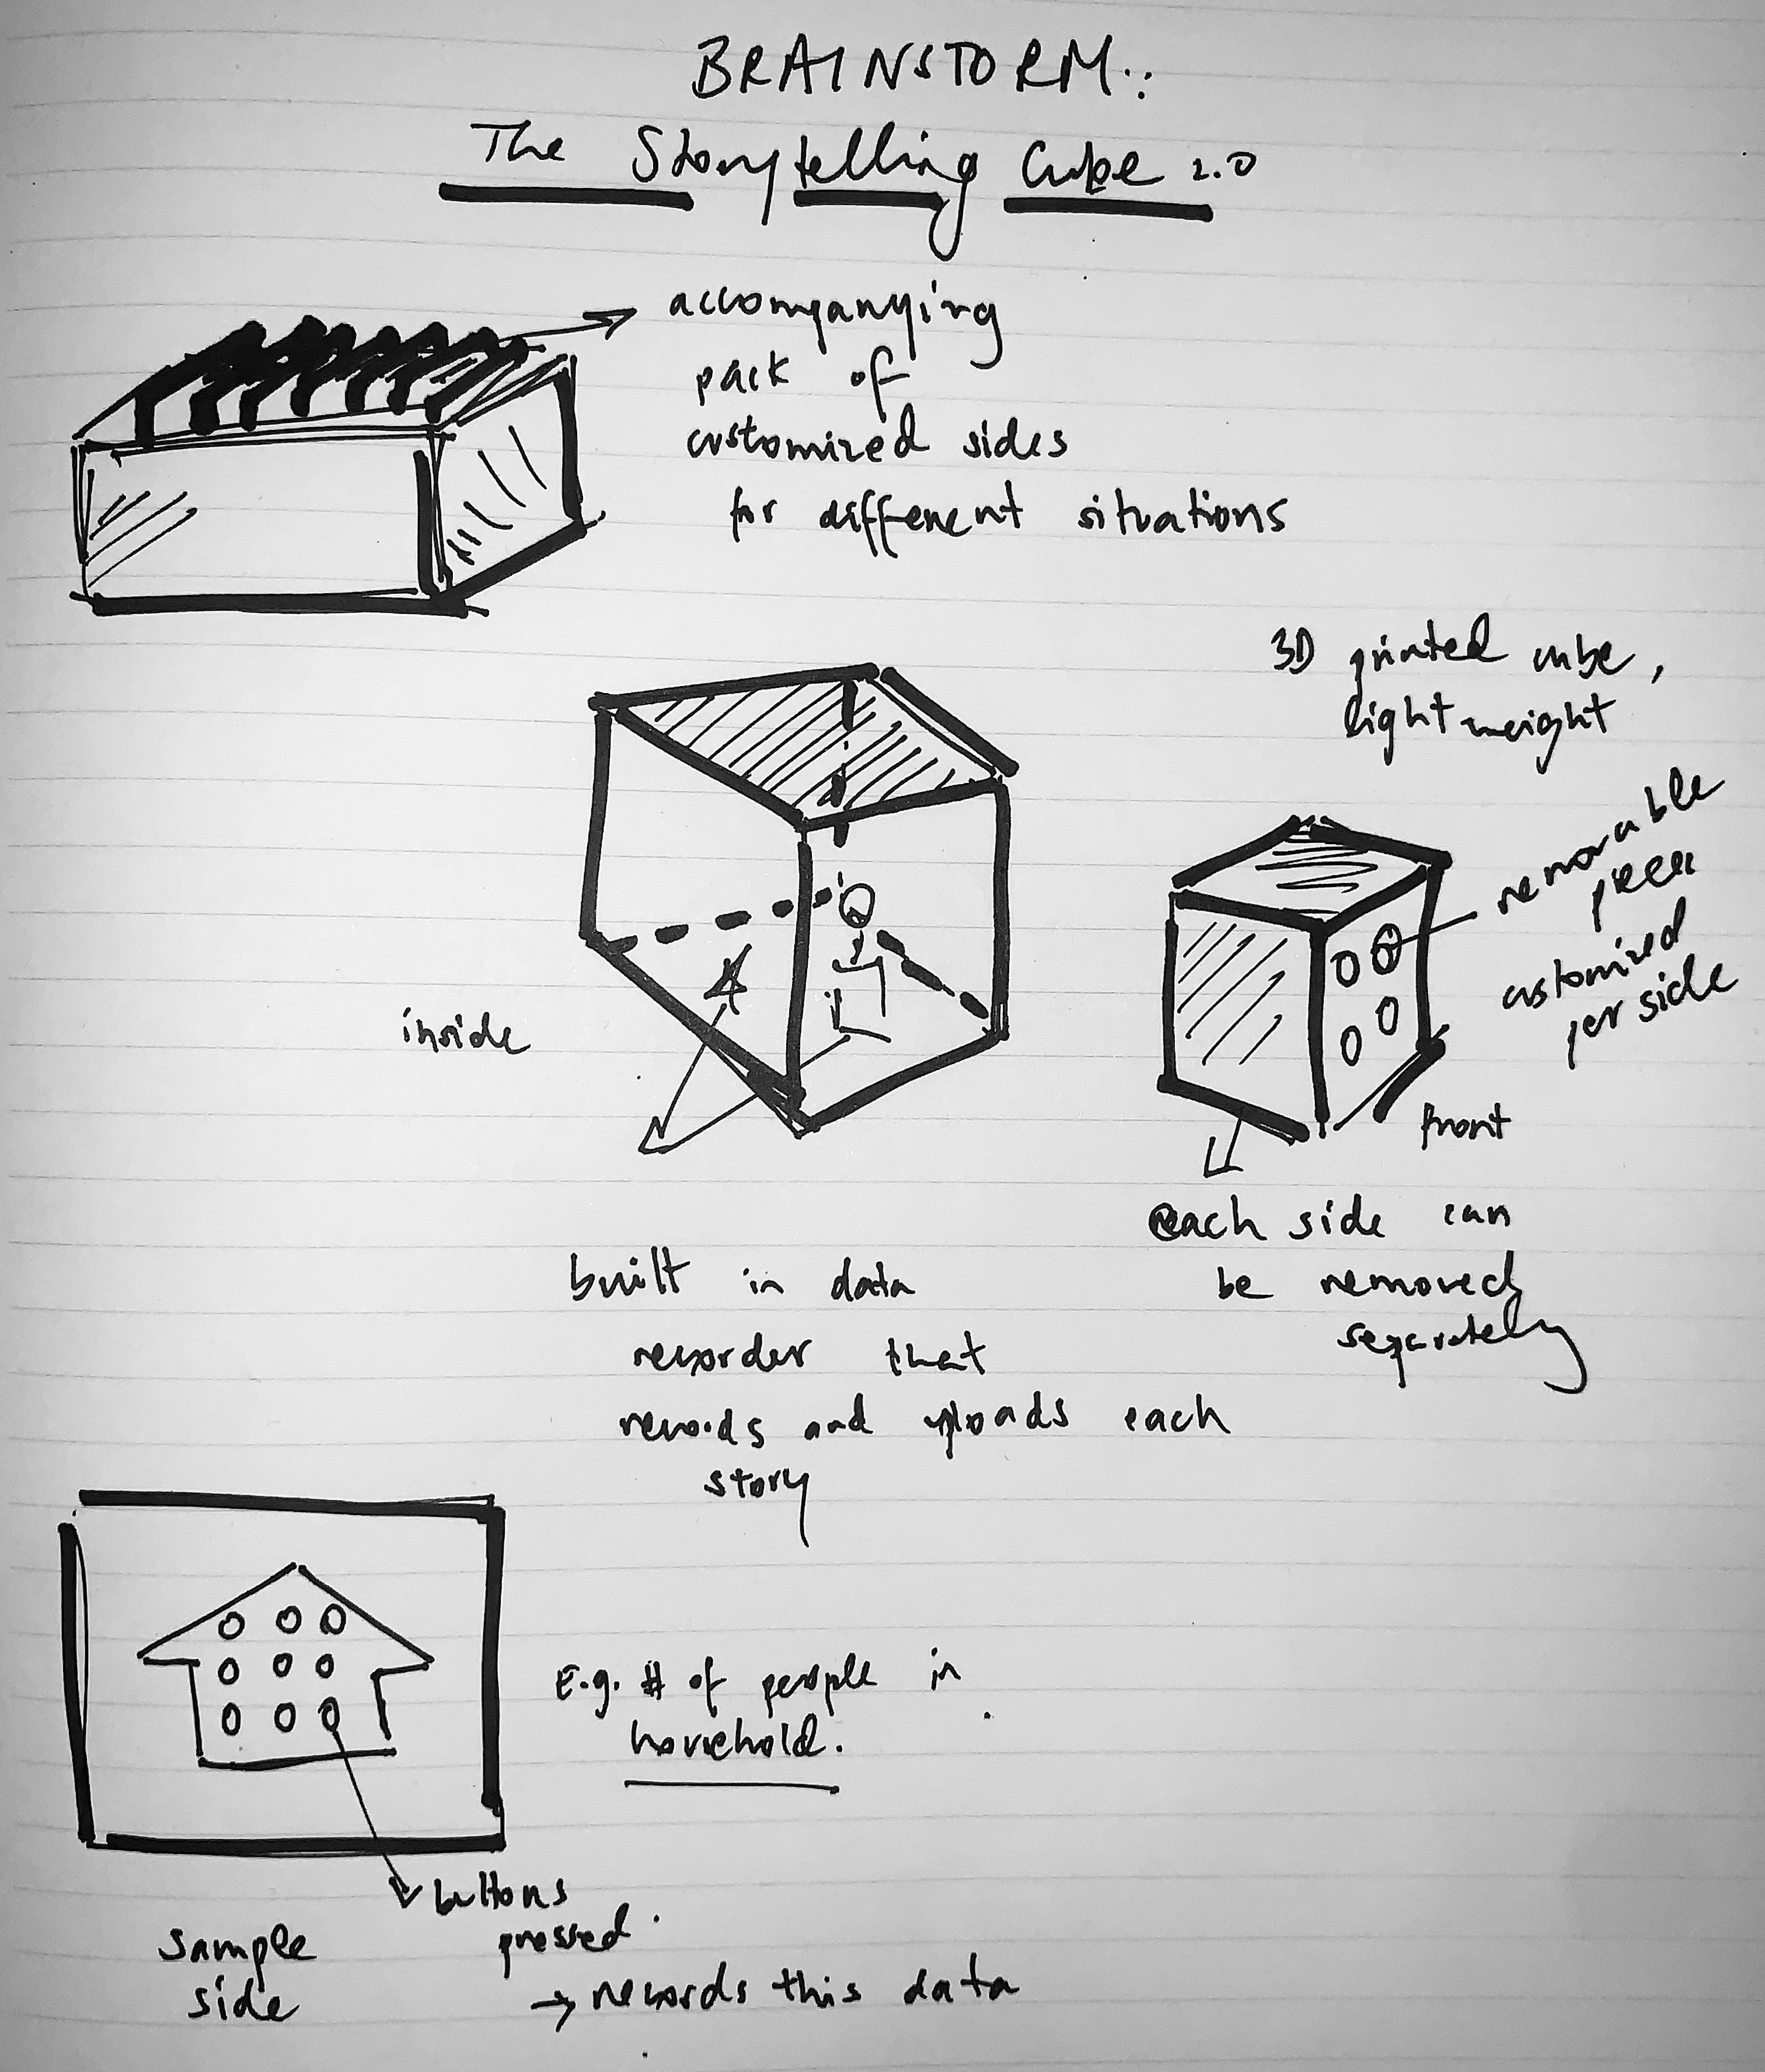 BRAINSTORM:
The Storytelling Cube 2.0
accompanying
pack of
customized sides
for different situations
3D printed cube,
lightweight
removable
pieces
customized
per side
inside
front
each side can
be removed
separately
built in data
recorder that
records and uploads each
story
E.g. # of people in
household.
buttons
pressed
→ records this data
sample
side